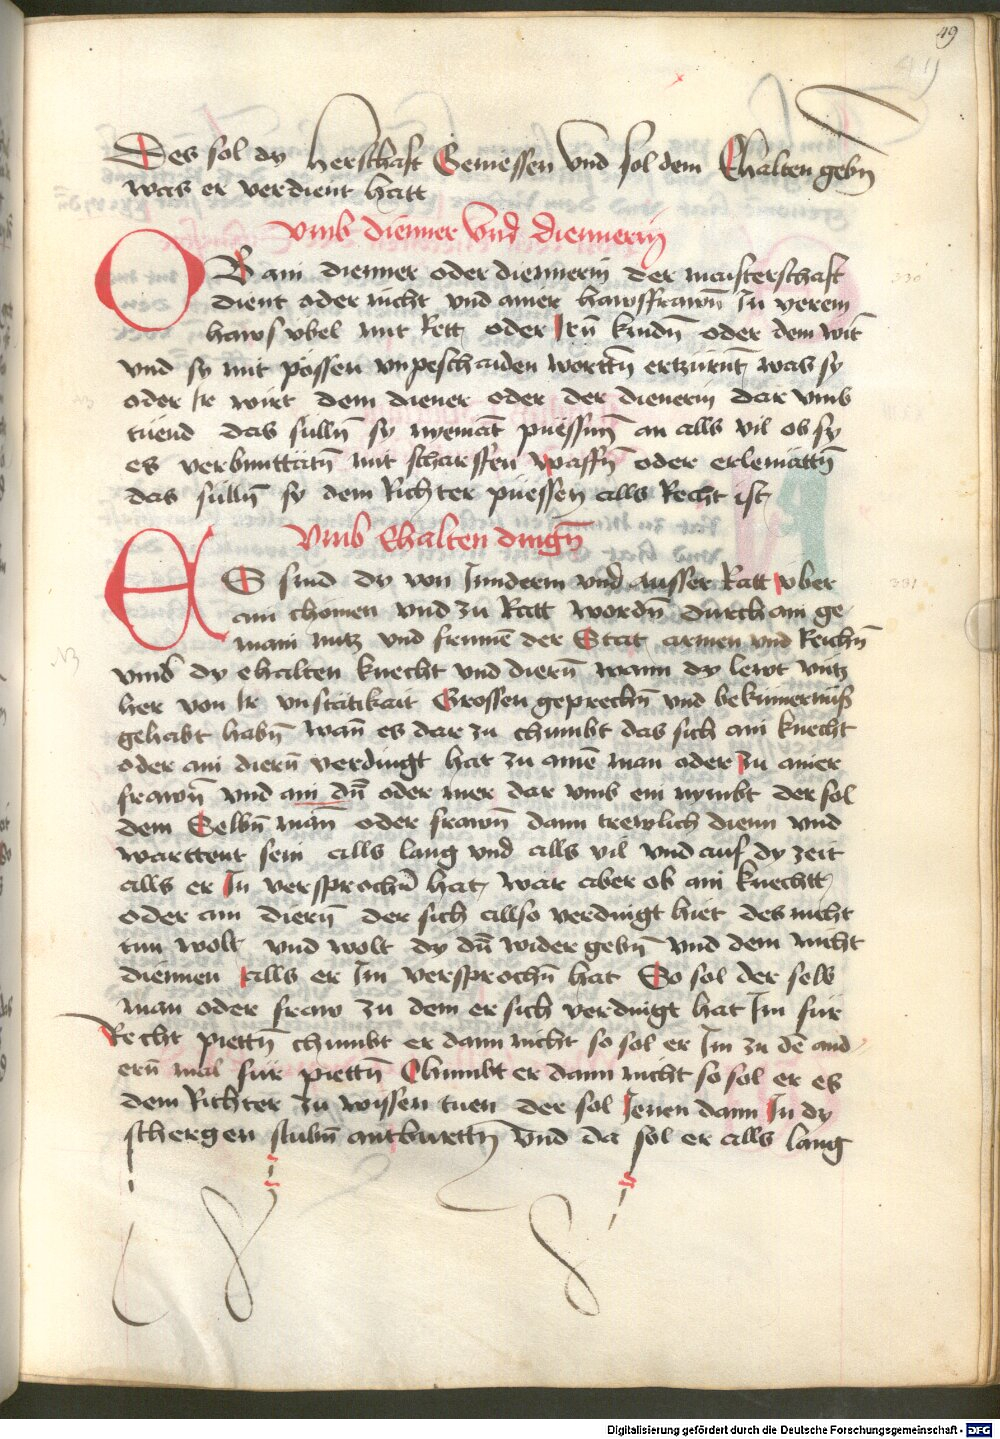 49
Des sol dy herschaft Geniessen vnd sol dem Ehalten gebn̄
was er verdient hatt
vmb diener vnd diennerin
OB ain dienner oder diennerin der maisterschaft
dient oder nicht vnd ainer hawsfrawn̄ In yerem
haws vbel mit Rett oder Irn̄ kindn̄ oder dem wirt
vnd sy mit pössen vnpeschaiden wortt̄n ertzürnt was sy
oder Ir wirt dem diener oder der dienerin dar vmb
tüend das sülln̄ sy nyemāt püessen̄ an alls vil ob sy
es verbunttätn̄ mit scharffen waffn̄ oder erlemättn̄
das sülln̄ sy dem Richter püessen alls Recht ist
vmb Ehalten dingn̄
330
ES sind dy von Innderm vnd ausser Ratt vber
ain chomen vnd zu Ratt wordn̄ durch ain ge
main nutz vnd frumē der Stat armen vnd Reichn̄
331
vmb dy ehalten knecht vnd diern̄ wann dy lewt vntz
her von Ir vnstätikait Grossen geprechn̄ vnd bekümernüß
gehabt habn̄ wan̄ es dar zu chumbt das sich ain knecht
oder ain diern̄ verdingt hat zu ainē man oder zu ainer
frawn̄ vnd ain dn̄ oder mer dar vmb ein nymbt der sol
dem Selbn̄ man̄ oder frawn̄ dann trewlich dienn vnd
warttent sein alls lang vnd alls vil vnd auf dy zeit
alls er In versprochn̄ hat, wär aber ob ain knechtt
oder ain diern̄ der sich allso verdingt hiet des nicht
tun wolt vnd wolt dy dn̄ wider gebn̄ vnd dem nicht
diennen alls er Im versprochn̄ hat So sol der selb
man oder fraw zu dem er sich verdingt hat Im für
Recht piettn̄ chumbt er dann nicht so sol er Im zu dē and
ern̄ mal für piettn̄ Chumbt er dann nicht so sol er es
dem Richter zu wyssen tuen der sol Jenen dann In dy
schergen stubn̄ antburttn̄ vnd da sol er alls lang
Digitalisierung gefördert durch die Deutsche Forschungsgemeinschaft - DFG